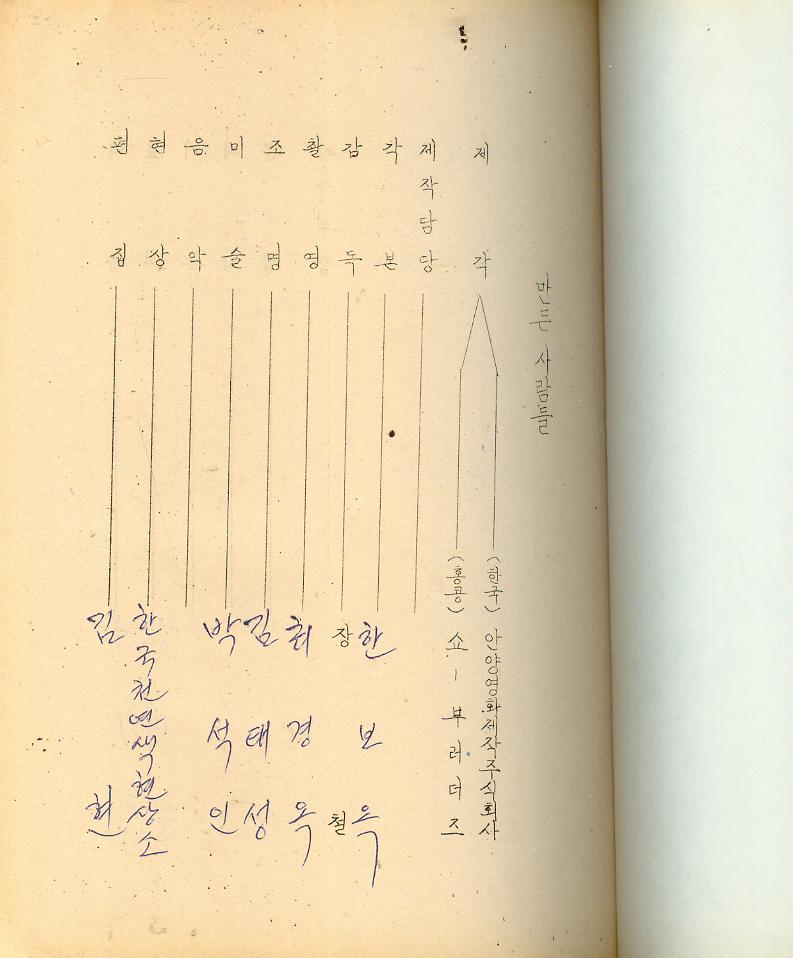 만든 사람들
제 각
(한국) 안양영화제작주식회사
(홍콩) 쇼-부러더즈
제작담당
각 본 한 보 옥
감 독 장 철
촬 영 최 경 옥
조 명 김 태 성
미 술 박 석 인
음 악
현 상 한국천연색현상소
편 집 김 현